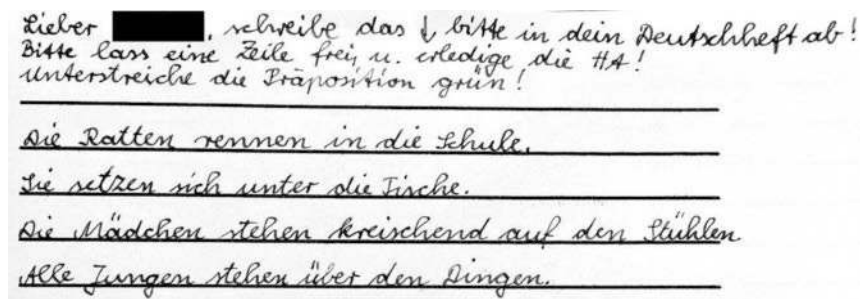 Lieber , schreibe das ↓ bitte in dein Deutschheft ab!
Bitte lass eine Zeile frei, u. erledige die HA!
Unterstreiche die Präposition grün!
Die Ratten rennen in die Schule.
Sie setzen sich unter die Tische.
Die Mädchen stehen kreischend auf den Stühlen.
Alle Jungen stehen über den Dingen.